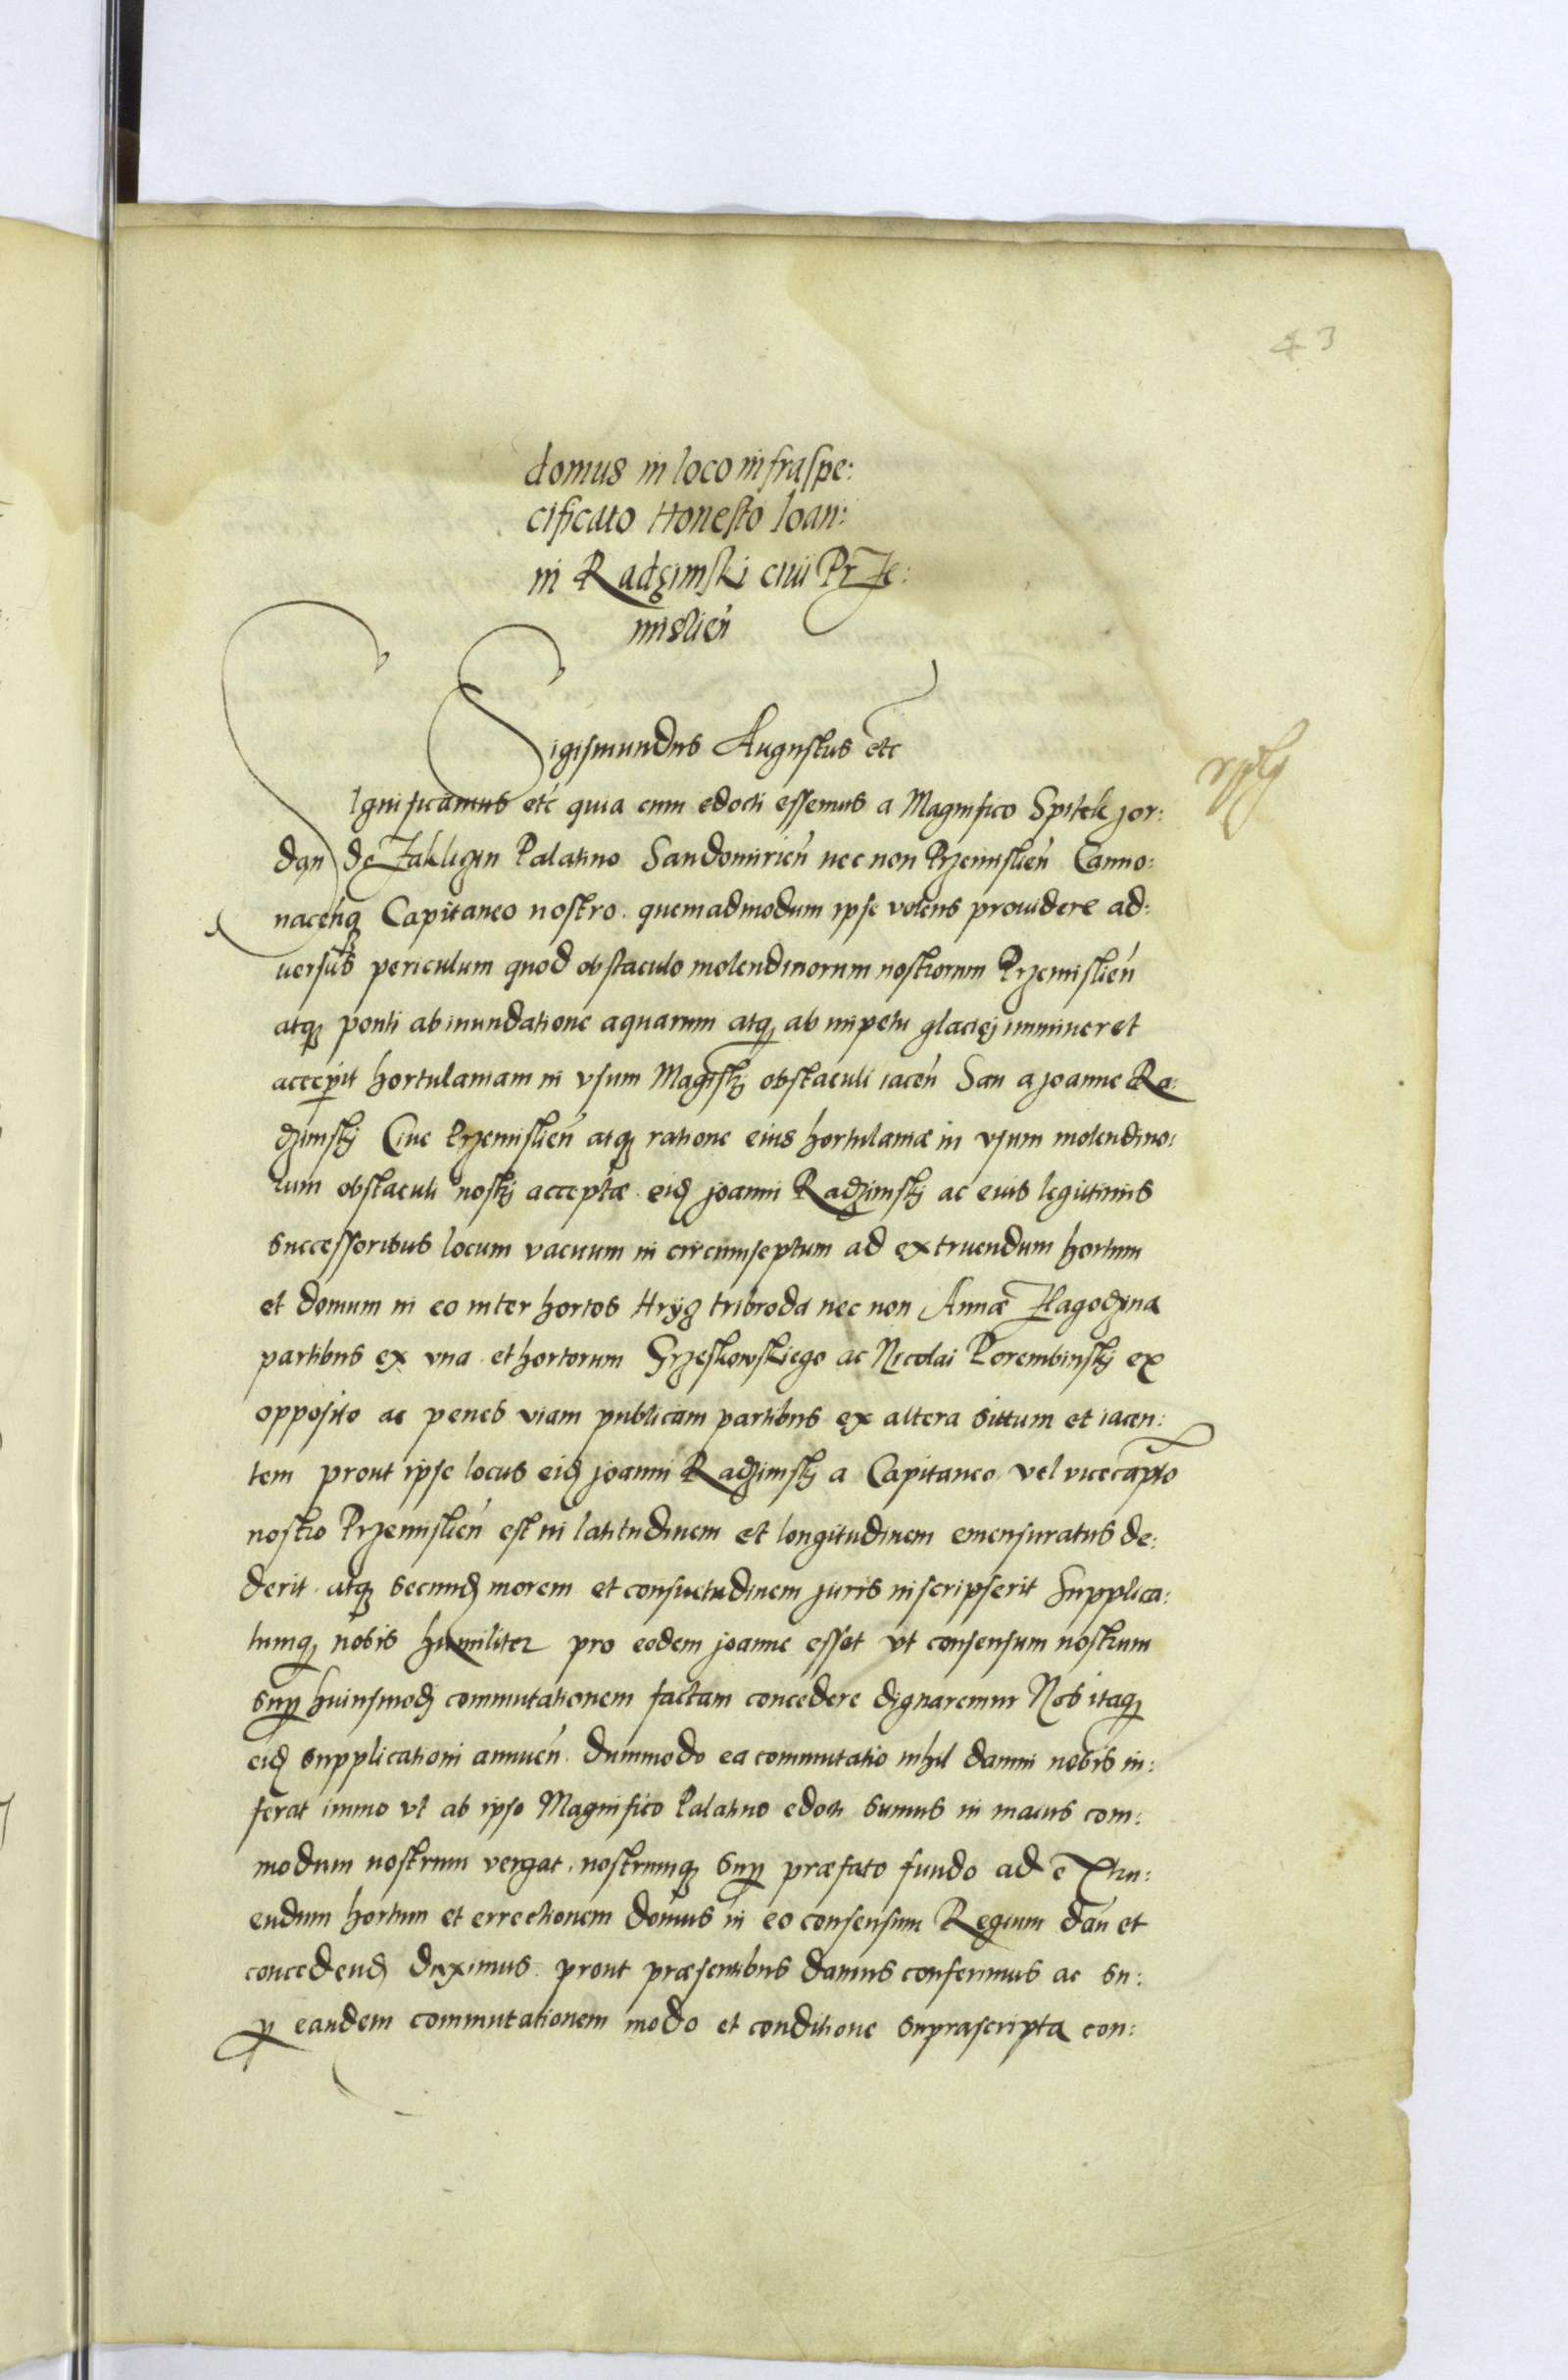 43
domus in loco infraspe:
cificato Honesto Ioan:
ni Radzimski ciui Prze:
mislień
Sigismundus Augustus etc
Ignificamus etc quia cum edocti essemus a Magnifico Spitek Jor:
dan de Zakliczin Palatino Sandomirień nec non Przemislień Camio:
naceńq Capitaneo nostro quemadmodum ipse volens prouidere ad:
uersus periculum quod obstaculo molendinorum nostrorum Przemislień
atq ponti ab inundatione aquarum atq ab impetu glaciej immineret
acceperit hortulaniam in vsum Magistri obstaculi iaceń San a Joanne Ra:
dzimskj Ciue Przemislień atq ratione eius hortulaniæ in vsum molendino:
rum obstaculi nostrj acceptæ eid Joanni Radzimskj ac eius legittimis
successoribus locum vacuum in circumseptum ad extruendum hortum
et domum in eo inter hortos Hryq tribroda nec non Annæ Zlagodzina
partibus ex vna et hortorum Grzeskowskiego ac Nicolai Porembinskj ex
opposito ac penes viam publicam partibus ex altera sittum et iacen:
tem prout ipse locus eid Joanni Radzimskj a Capitaneo vel vicecapto
nostro Przemislień est in latitudinem et longitudinem emensuratus de:
derit atq secund morem et consuetudinem juris inscripserit Supplica:
tumq nobis humiliter pro eodem Joanne esset vt consensum nostrum
sup huiusmodj commutationem factam concedere dignaremur Nos itaq
eid supplicationi annueń dummodo ea commutatio nihil damni nobis in:
ferat immo vt ab ipso Magnifico Palatino edocti sumus in maius com:
modum nostrum vergat nostrumq sup præfato fundo ad extru:
endum hortum et errectionem domus in eo consensum Regium dań et
concedend duximus prout præsentibus damus conferimus ac su:
p eandem commutationem modo et conditione suprascripta con: